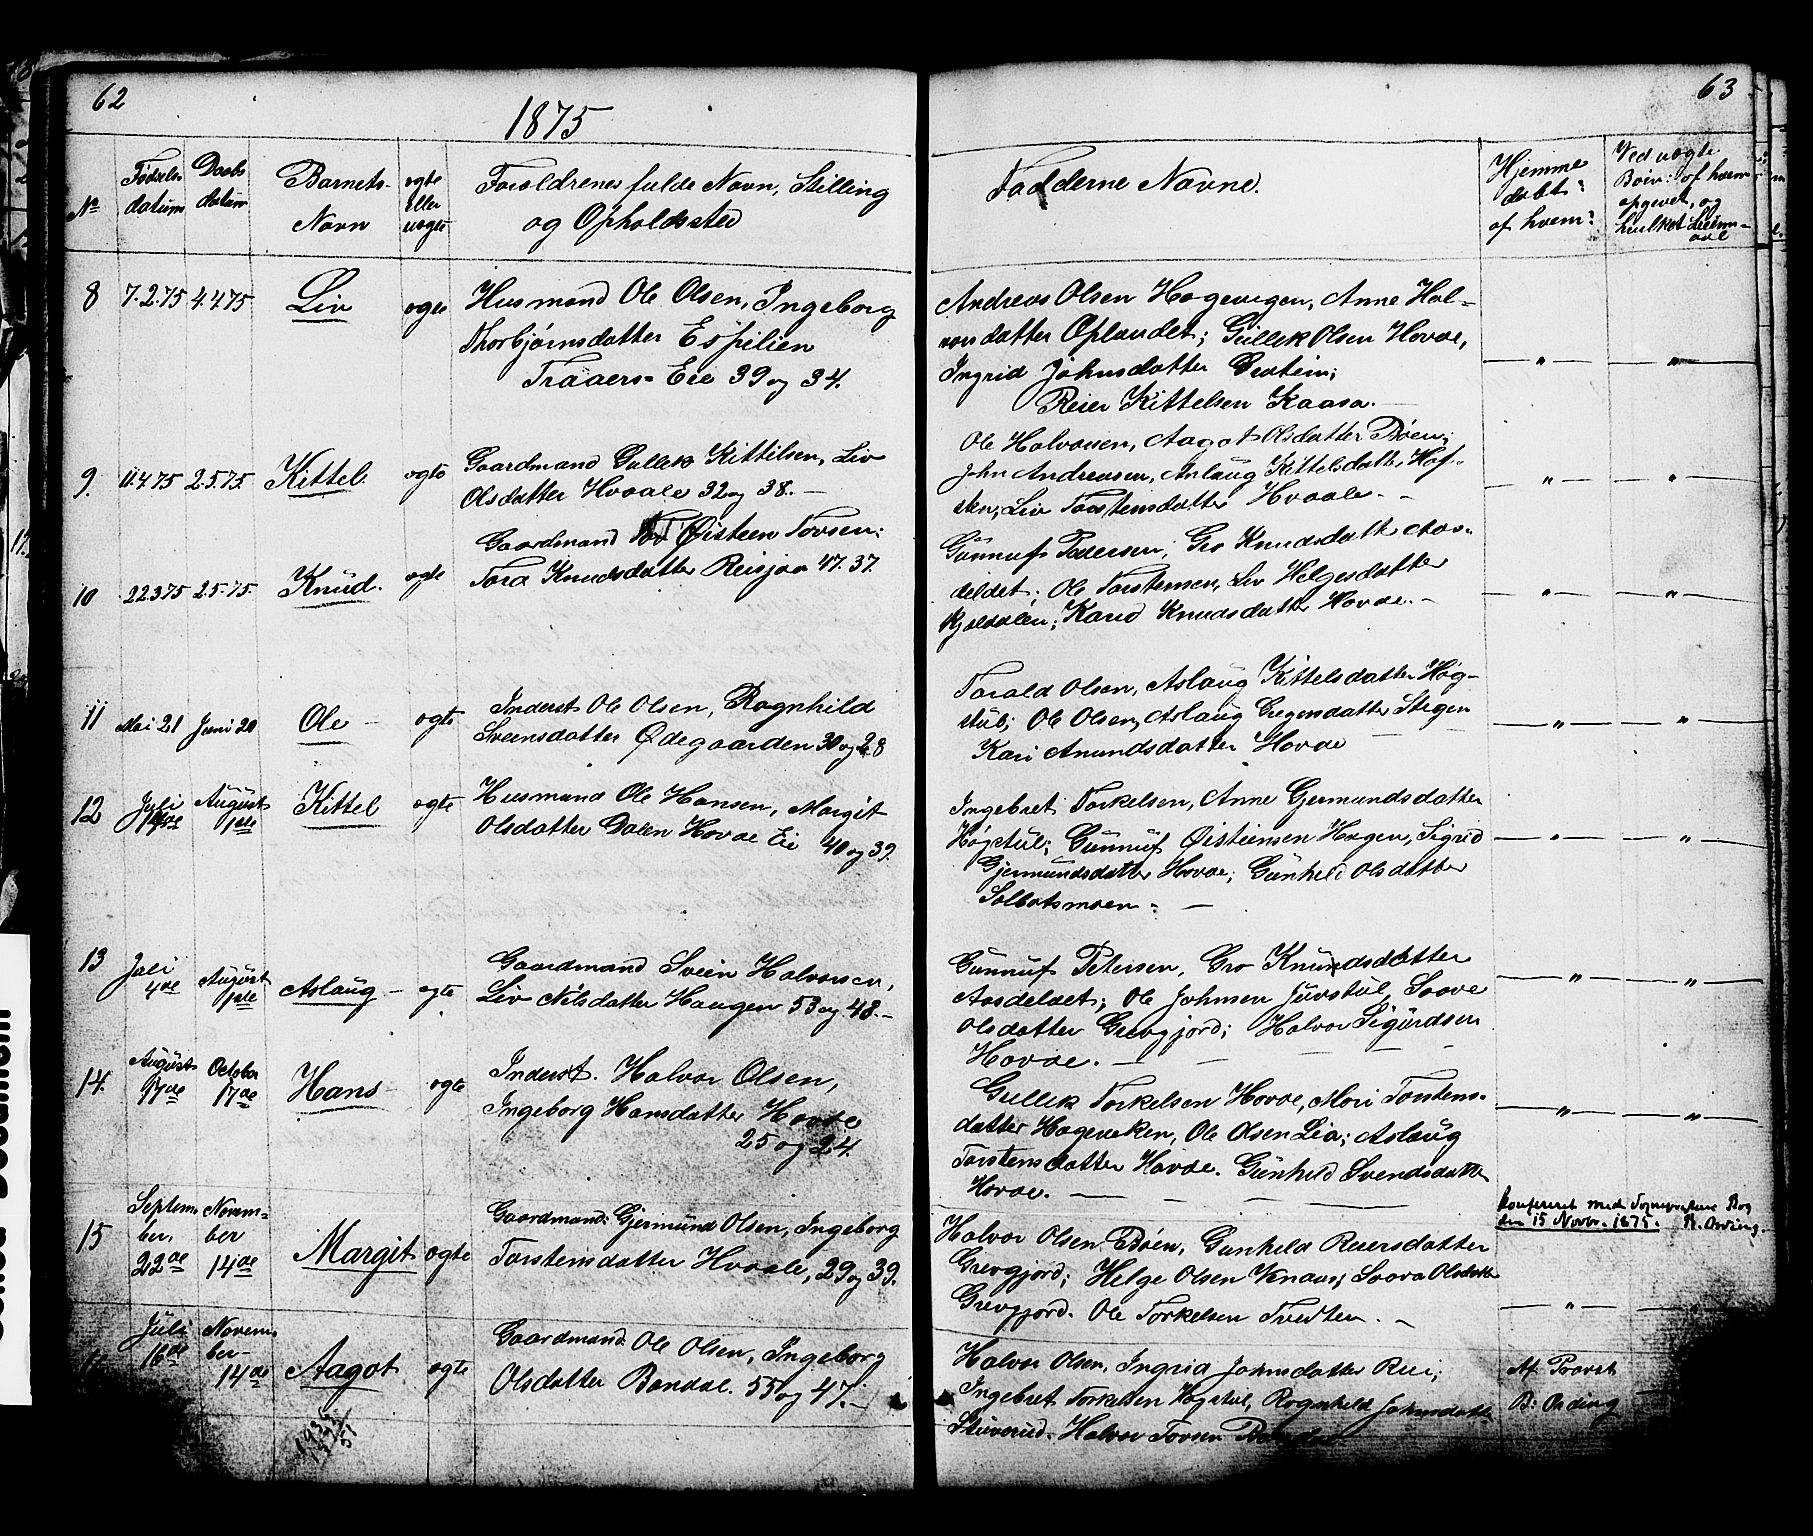 62
1875
Nº
Fødsels datum
Daabs datum
Barnets Navn
ægte eller uægte
Forældrenes fulde Navn, Stilling
og Opholdssted
8 7.2.75 4.4.75 Liv ægte Husmand Ole Olsen, Ingeborg
Thorbjørnsdatter Espelien
Traaers- Eie 39 og 34.
9. 11.4.75 2.5.75. Kittel. ægte Gaardmand Gullek Kittilsen, Liv
Olsdatter Hvaale 32 og 38. —
10 22.3.75 2.5.75. Knud. ægte Gaardmand Øisteen Tovsen;
Tora Knudsdatter Reisjaa 47. 37.
11 Mai 21 Juni 20 Ole — ægte Inderst Ole Olsen, Ragnhild
Sveinsdatter Ødegaarden 30 og 28
12 Juli August 1ste Kittel ægte Husmand Ole Hansen, Margit
Olsdatter Dalen Hovde Eie 40 og 39.
13 Juli 4de August 1ste Aslaug — ægte Gaardmand Svein Halvorsen,
Liv Nilsdatter Haugen 53 og 48. —
14. August 17de October 17de Hans — ægte Inderst. Halvor Olsen,
Ingeborg Hansdatter Hovde
25 og 24.
15 September 22de November 14de Margit ægte Gaardmand: Gjermund Olsen, Ingeborg
Torstensdatter Hvaale, 29 og 39.
Juli 16de November 14de Aagot ægte Gaardmand. Ole Olsen, Ingeborg
Olsdatter Bandal. 55 og 47. —
63
Fadderne Navne.
Hjemme døbt?
af hvem?
Ved uægte
Børn: af hvem
opgivet, og
hvilket Leiermaal
Andreas Olsen Hagevigen, Anne Hal-
vorsdatter Oplandet; Gullek Olsen Hovde,
Ingrid Johnsdatter
Reier Kittelsen Kaasa. —
Ole Halvorsen, Aagot Olsdatter Bøen;
John Andreasen, Anlaug Kittelsdatter Haf-
sten; Liv Torstensdatter Hvaale. —
Gunnuf Pedersen, Gro Knudsdatter Aas-
deldet; Ole Torstensen, Liv Helgesdatter
Kjoldalen; Kari Knudsdatter Hovde. —
Torald Olsen, Aslaug Kittelsdatter Høg-
stul; Ole Olsen, Aslaug Gregersdatter Stigen
Kari Amundsdatter Hovde
Ingebret Torkelsen, Anne Gjermundsdatter
Høgstul; Gunnuf Øisteinsen Hagen, Sigrid
Gjermundsdatter Hovde; Gunhild Olsdatter
Solbotsmoen. —
Gunnuf Petersen, Gro Knudsdatter
Aasdeldet; Ole Johnsen Juvstul, Saave
Olsdatter Grevgjord; Halvor Sigurdsen
Hovde. —
Gullek Torkelsen Hovde, Mari Torstens-
datter Hageveken, Ole Olsen Lia; Aslaug
Torstensdatter Hovde. Gunhild Svendsdatter
Hovde. —
Konfereret med Sognepræstens Bog
den 15 Novbr. 1875. B. Ording.
Halvor Olsen Bøen, Gunhild Reiersdatter
Grevgjord; Helge Olsen Knaas; Saava Olsdatter
Grevgjord. Ole Torkelsen Tvedten. —
Halvor Olsen, Ingrid Johnsdatter Rui;
Ingebret Torkelsen Høgstul, Ragnhild Johnsdatter
Stuverud. Halvor Tovsen
Af Provst
B: Ording